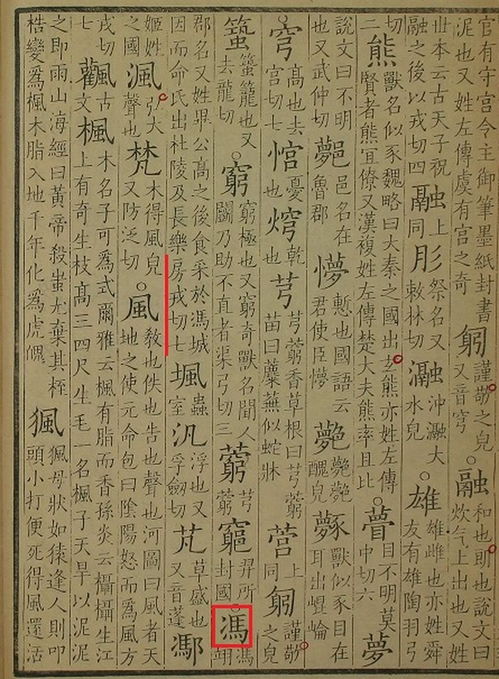 官有守宮令主御筆墨紙封書泥也又姓左傳虞有宮之奇躬謹敬之皃又音穹。融和也朗也說文曰炊氣上出也又姓
丗本云古天子祝融之後以戎切四融上同肜祭名又敕林切瀜沖瀜大水皃。雄雄雌也亦姓舜友有雄陶羽弓
切二熊獸名似豕魏略曰大秦之國出玄熊亦姓左傳賢者熊宜僚又漢複姓左傳楚大夫熊率且比。瞢目不明莫中切六夢
說文曰不明也又武仲切鄸邑名在魯郡懜慙也國語云君使臣懜醜皃獸似豕目在耳出崏崘
。穹高也去宮切七㤨憂也焪乾也芎芎藭香草根曰芎藭苗曰蘼蕪似蛇牀營上同躳謹敬之皃
又去龍切。窮窮極也又窮奇獸名聞人鬬乃助不直者渠弓切三藭芎藭竆羿所封國。馮馮翊
郡名又姓畢公高之後食采於馮城因而命氏出杜陵及長樂房戎切七堸蟲室汎浮也又孚劒切芃草盛也又音蓬鄸
姬姓之國渢弘大聲也梵木得風皃又防泛切。風教也佚也告也聲也河圖曰風者天地之使元命包曰陰陽怒而為風方
戎切七飌古文楓木名子可為式爾雅云楓有脂而香孫炎云攝攝生江上有奇生枝高三四尺生毛一名楓子天旱以泥泥
之即雨山海經曰黄帝殺蚩尤棄其桎梏變為楓木脂入地千年化為虎魄猦猦母狀如猿逢人則叩頭小打便死得風還活